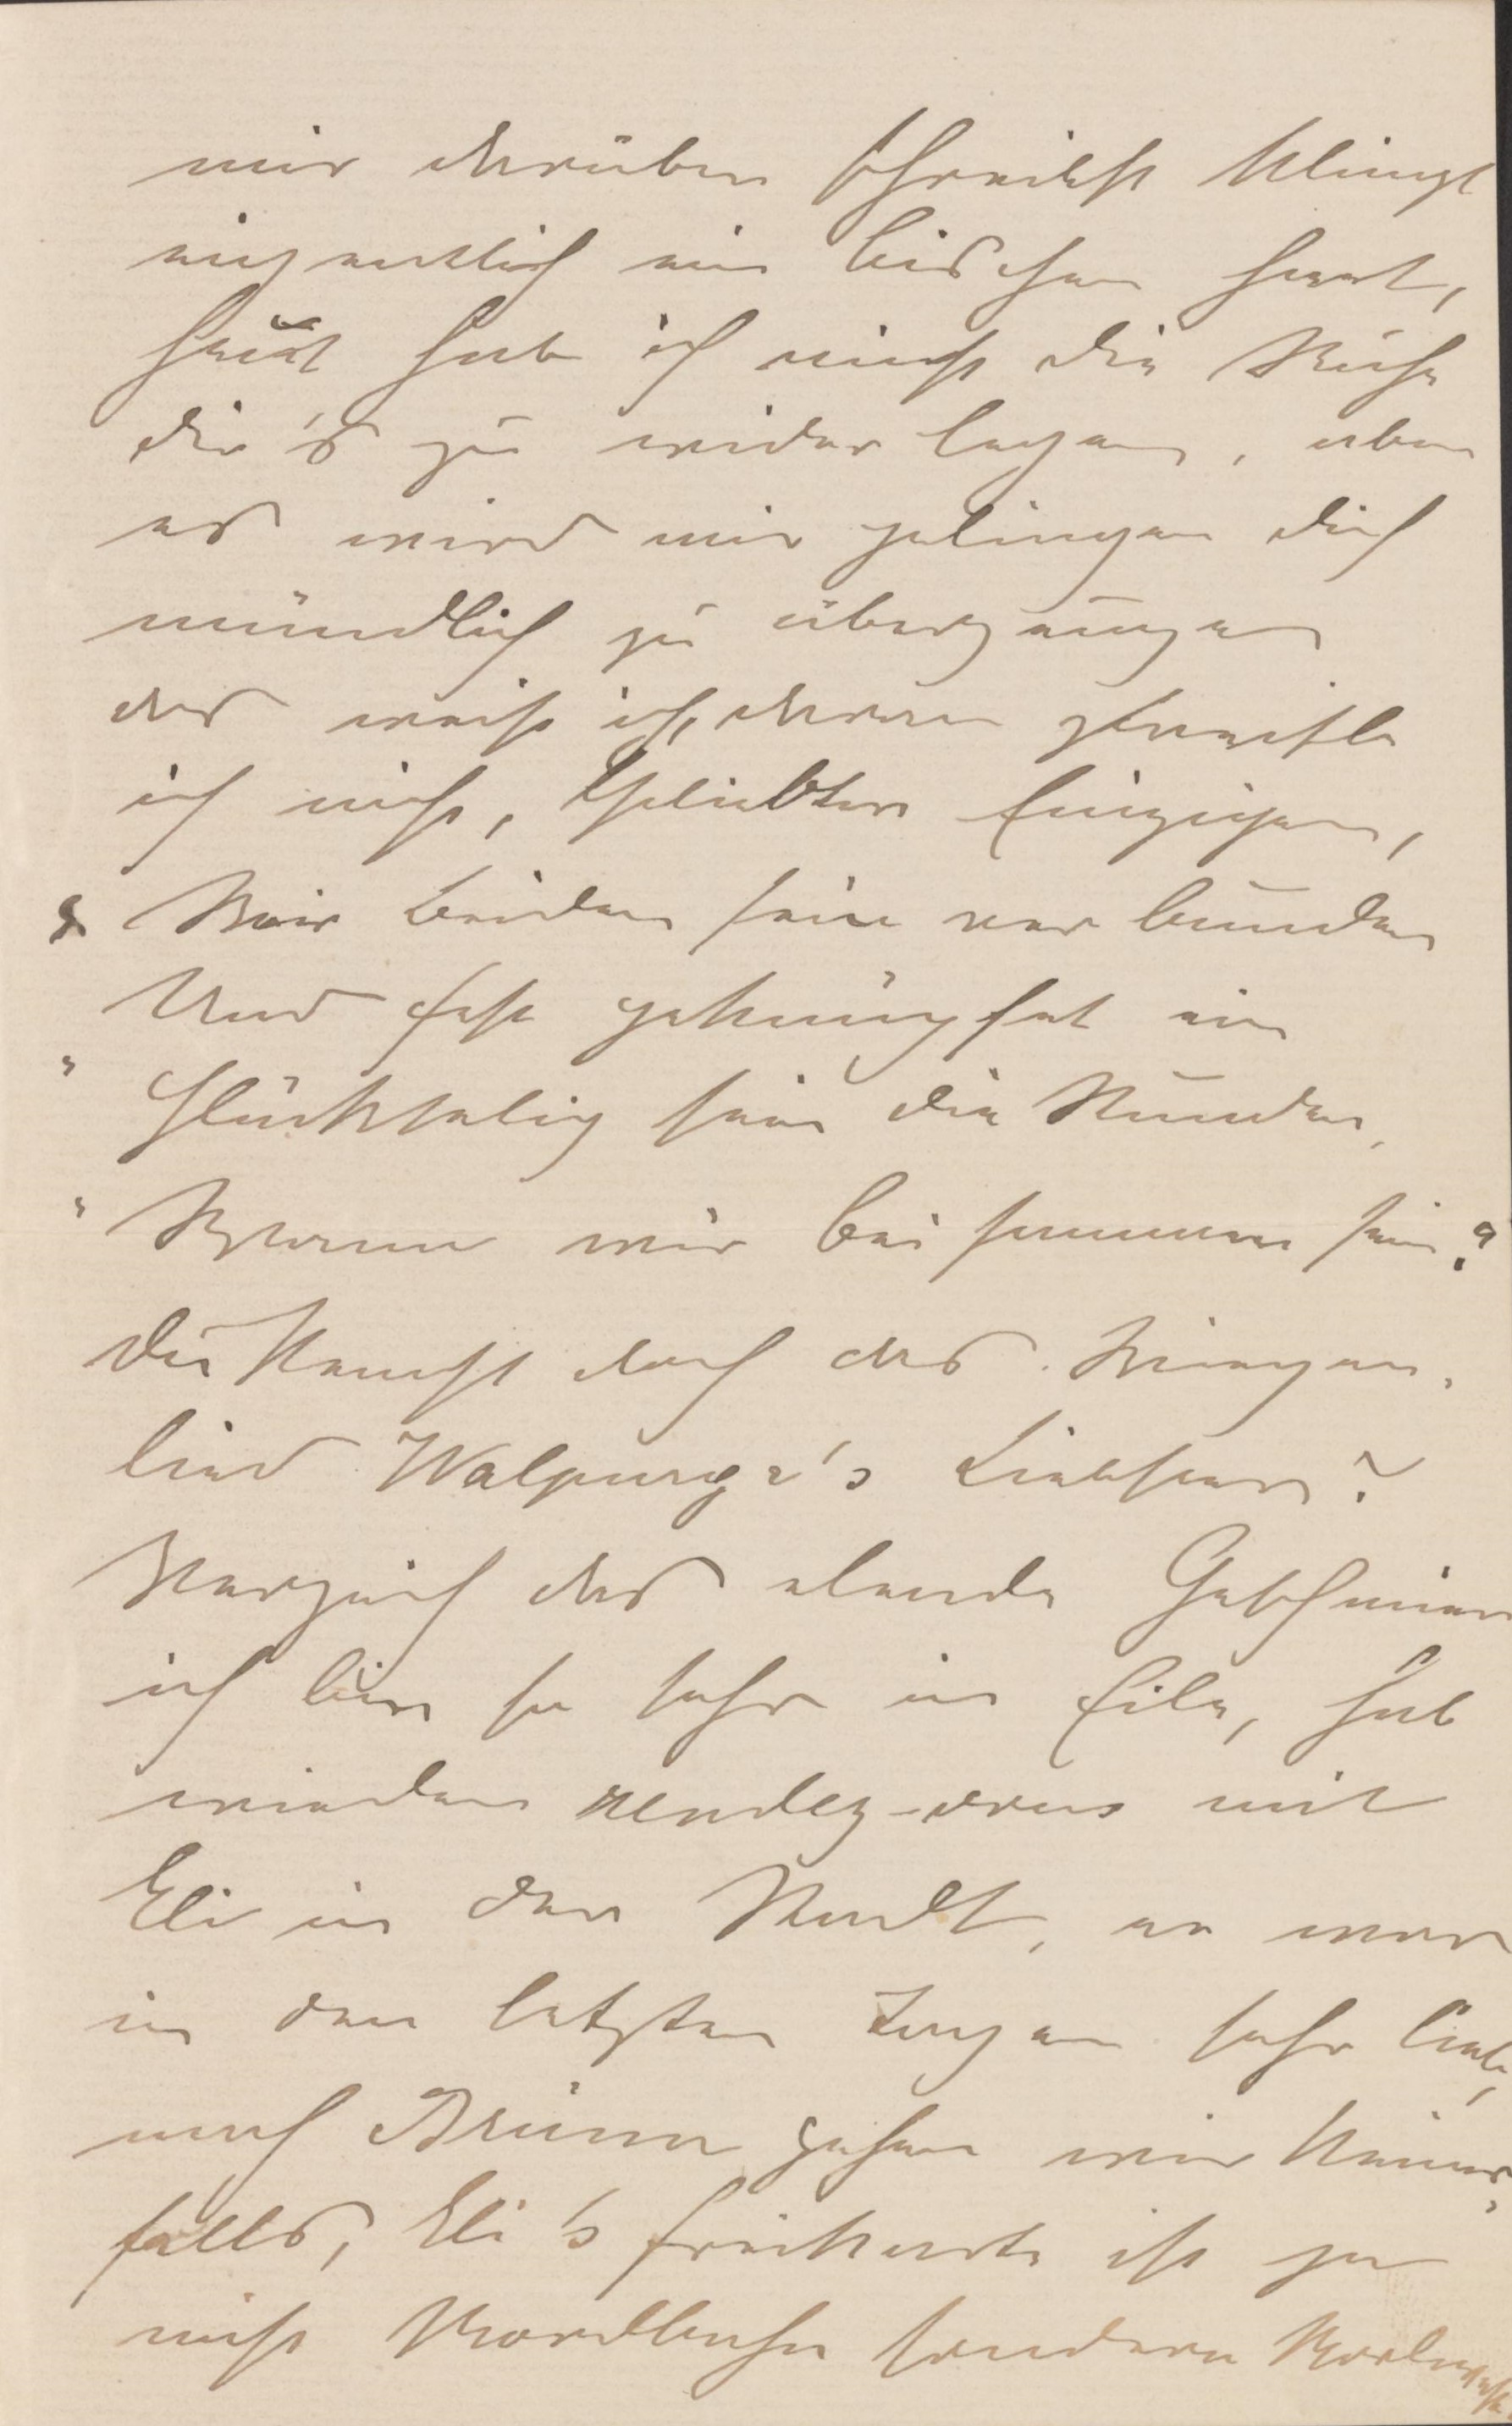 mir darüber schreibst klingt
eigentlich ein bischen hart,
heut hab ich nicht die Ruhe
dir's zu wider legen, aber
es wird mir gelingen dich
mündlich zu überzeugen
das weiß ich, daran zweifle
ich nicht, Geliebter Einziger,
„ Wir beiden sein verbunden
Und fest geknüpfet ein
" Glückselig sein die Stunden,
" Wann wir beisammen sein?
Du kennst doch das Wiegen-
lied Walpurga's Liebster?
Verzeih das elende Geschmier
ich bin so sehr in Eile, hab
wieder rendez-vous mit
Eli in der Stadt, er war
in den letzten Tagen sehr lieb,
nach Brünn gehen wir keines-
falls, Eli's Freikarte ist ja
nicht Nordbahn sondern